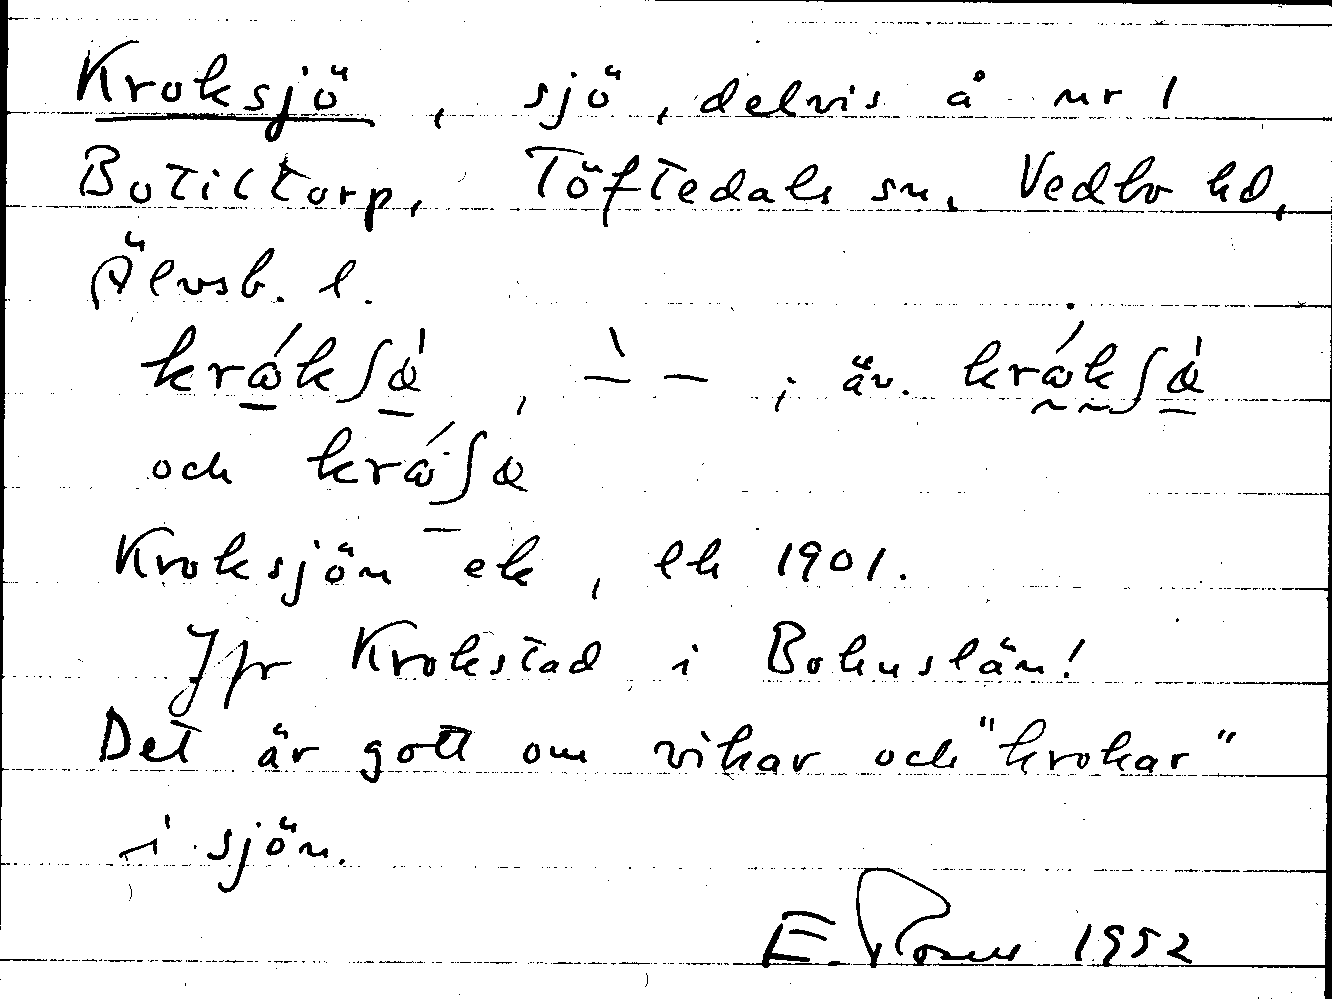 Kroksjö, sjö, delvis å nr 1
Botiltorp, Töftedals sn, Vedbo hd,
Älvsb. l.
krώkʃὰ, —̀ — ; äv. krώkʃὰ
och krώʃὰ
Kroksjön ek, hk 1901.
Jfr Krokstad i Bohuslän!
Det är gott om vikar och "krokar"
i sjön.
E. Rosell 1952